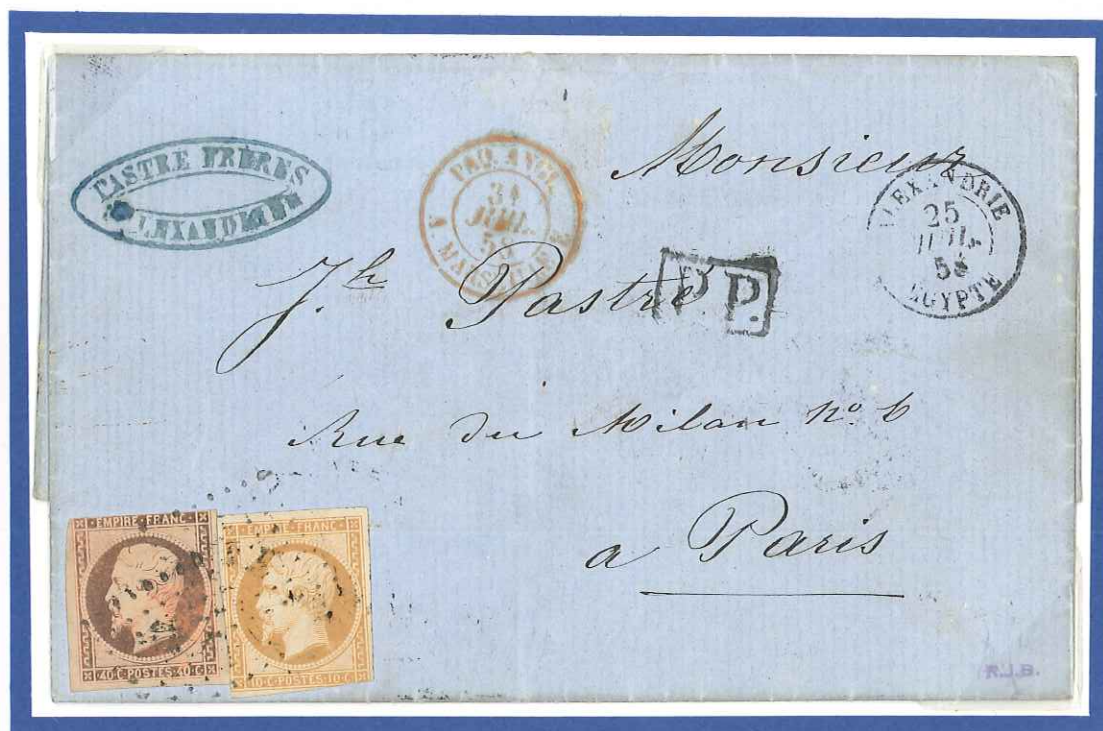 PASTRE FRERES
ALEXANDRIE
PAQ. ANGL.
31
JUIL.
58
A MARSEILLE
Monsieur
ALEXANDRIE
25
JUIL.
58
EGYPTE
Jh Pastre
P.P.
Rue du Milan No 6
a Paris
EMPIRE·FRANC·
40·C·POSTES·40·C
EMPIRE·FRANC·
10·C·POSTES·10·C
R.J.B.